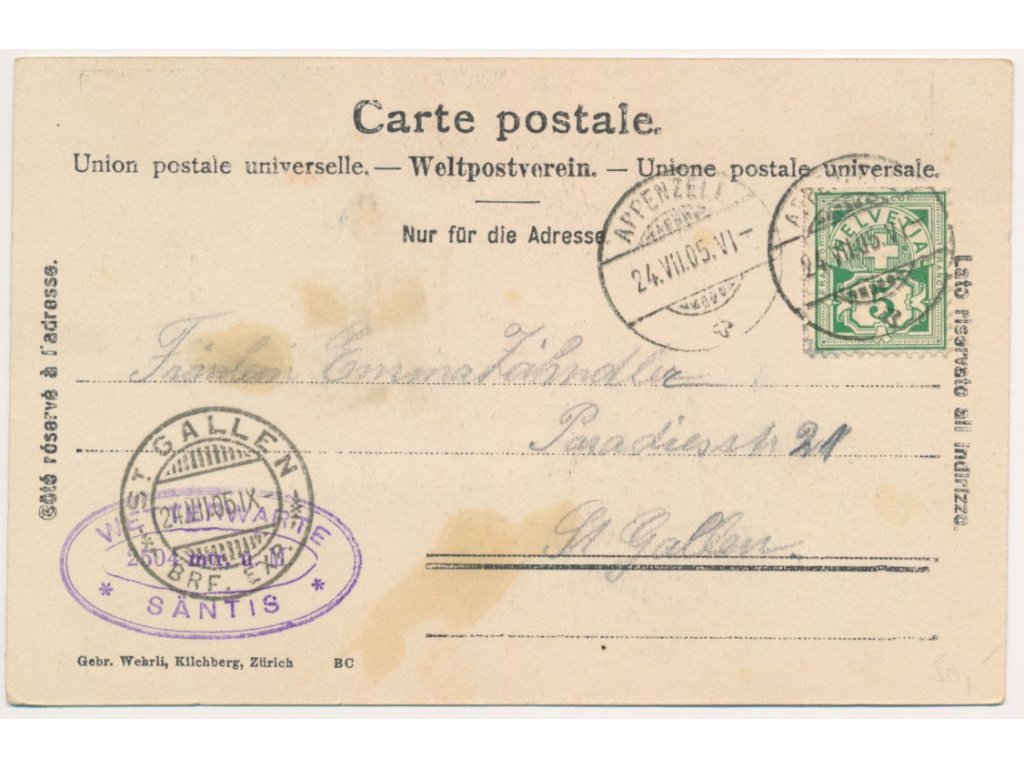 Carte postale.
Union postale universelle. — Weltpostverein. — Unione postale universale.
Nur für die Adresse
Côté réservé à l'adresse.
Lato riservato all indirizzo.
APPENZELL
24.VII.05.VI-
APPENZELL
24.VII.05.
HELVETIA
FRANCO
5
Fräulein Emma
Paradiesstr 21
St Gallen.
ST GALLEN
24.VII.05.IX-
BRF. EXP.
WETTERWARTE
2504 m. ü. M.
* SÄNTIS *
Gebr. Wehrli, Kilchberg, Zürich BC